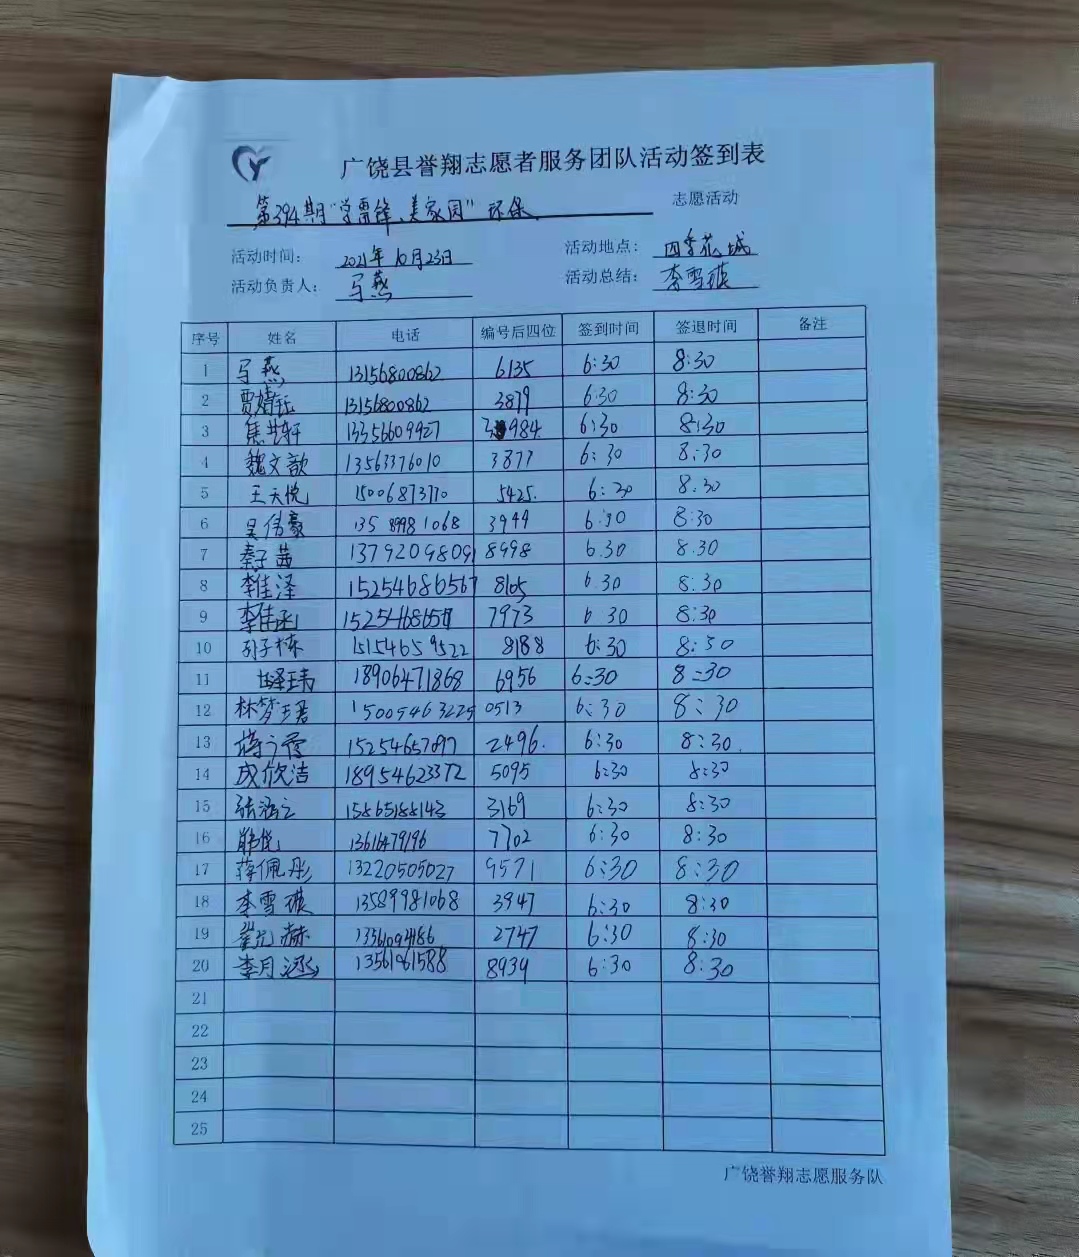 广饶县誉翔志愿者服务团队活动签到表
第394期"学雷锋、美家园"环保 志愿活动
活动时间： 2021年10月23日 活动地点： 四季花城
活动负责人： 马燕 活动总结： 李雪琪
序号 姓名 电话 编号后四位 签到时间 签退时间 备注
1 马燕 13156800862 6135 6:30 8:30
2 贾婧钰 13156800862 3879 6:30 8:30
3 13356609927 984 6:30 8:30
4 魏文歆 13563376010 3877 6:30 8:30
5 王天悦 15006873770 5425. 6:30 8:30
6 吴伟豪 13589981068 3944 6:30 8:30
7 秦子茜 13792098091 8998 6.30 8.30
8 李佳泽 15254686567 8165 6.30 8:30
9 李佳 7973 6 30 8:30
10 孙子栋 15154659522 8188 6:30 8:30
11 18906471868 6956 6:30 8:30
12 林梦 15005463229 0513 6:30 8:30
13 蒋 15254657897 2496. 6:30 8:30.
14 成欣洁 18954623372 5095 6:30 8:30
15 张涵之 15865188143 3169 6:30 8:30
16 韩悦 13616479196 7702 6:30 8:30
17 蒋佩彤 13220505027 9571 6:30 8:30
18 李雪琪 13589981068 3947 6:30 8:30
19 赫 2747 6:30 8:30
20 李月涵 13561961588 8939 6:30 8:30
21
22
23
24
25
广饶誉翔志愿服务队